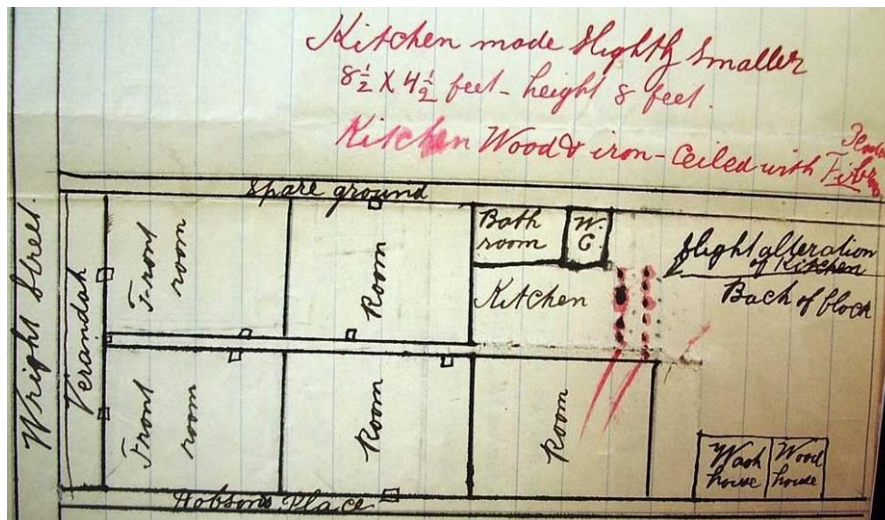 Kitchen made slightly smaller
8½ X 4½ feet - height 8 feet.
Kitchen Wood & iron - ceiled with
Spare ground
Wright Street.
Verandah
Front
room
Room
Bath
room
W.
C.
Kitchen
slight alteration
of Kitchen
Back of block
Front
room
Room
Room
Wash
house
Wood
house
Hobsons Place